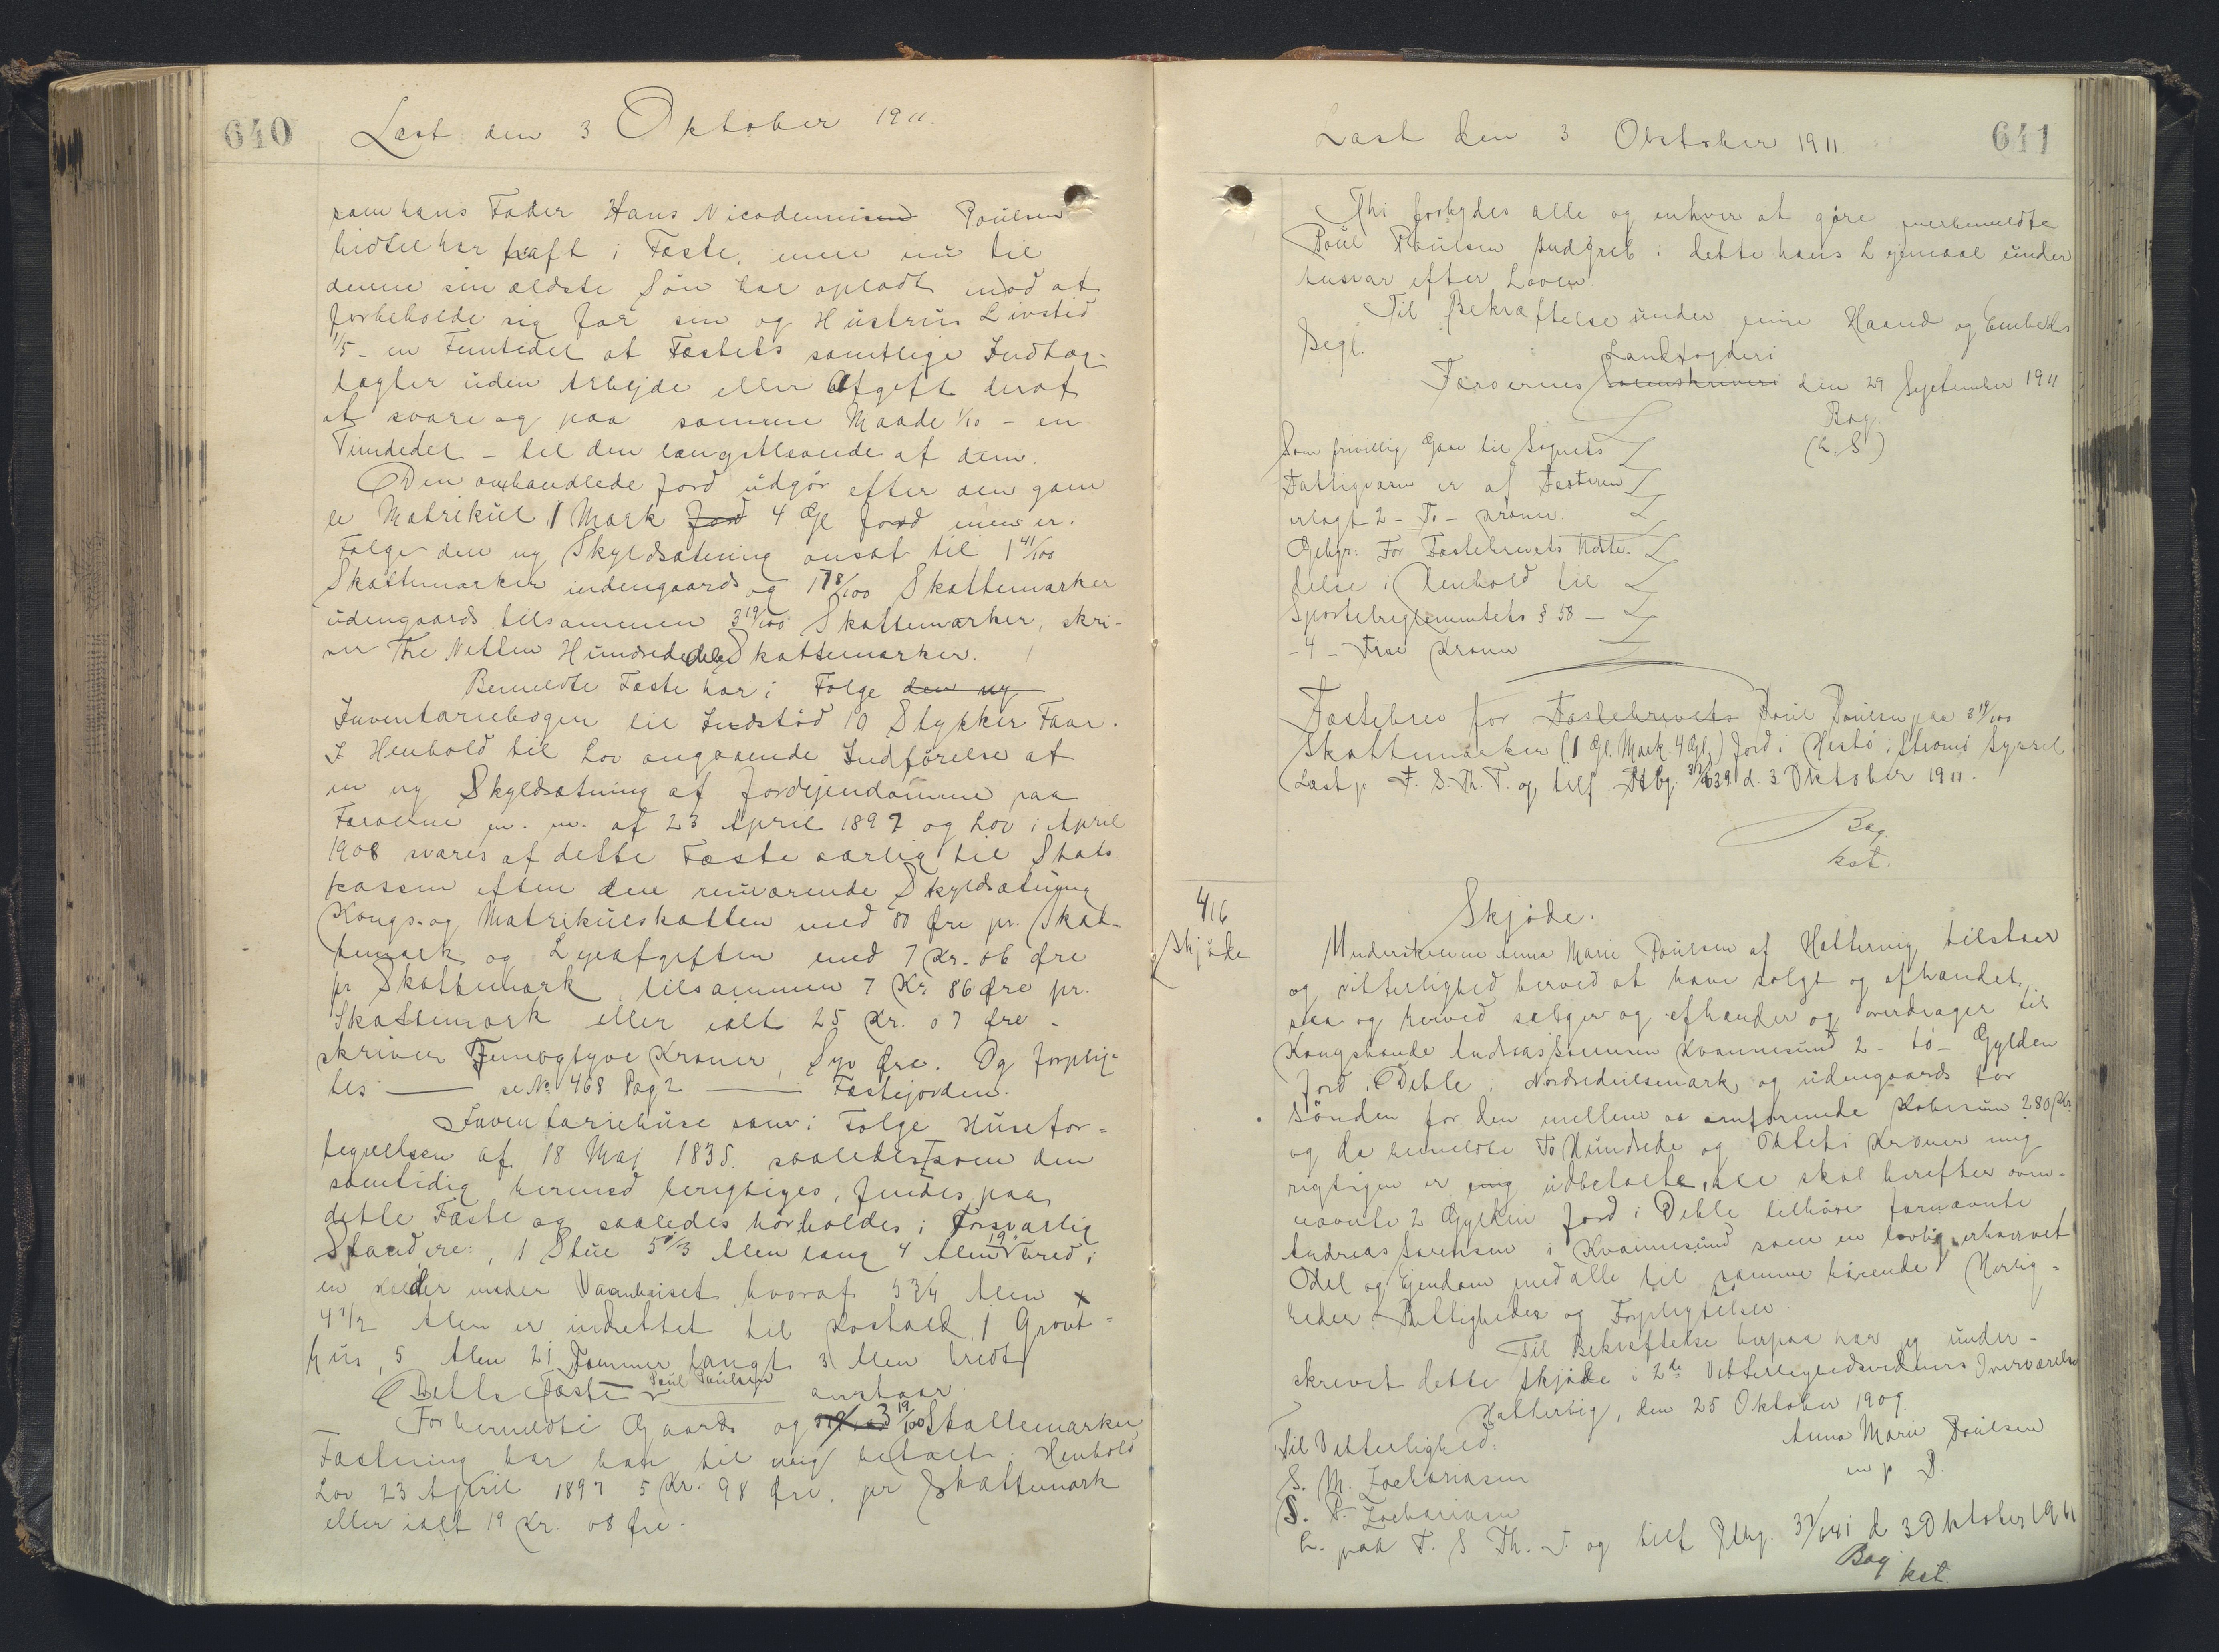 640
Læst den 3 Oktober 1911.
som hans Fader Hans Nicodemisen Poulsen
hidtil har haft i Fæste, men nu til
denne sin ældste Søn har opladt mod at
forbeholde sig for sin og Hustrus Livstid
1/5 - en Femtedel af Fæstets samtlige Indtæg-
tægter uden Arbejde eller Afgift deraf
at svare og paa samme Maade 1/10 - en
Tiendedel - til den længstlevende af dem.
Den omhandlede Jord udgør efter den gam
le Matrikul 1 Mark Jord 4 Gl Jord men er i
Følge den ny Skyldsætning ansat til 1 41/100
Skattemarker indengaards og 1 78/100 Skattemarker
udengaards tilsammen 3 19/100 Skattemarker, skri-
ver Tre Nitten Hundrededele Skattemarker.
Bemeldte Fæste har i Følge den ny
Inventariebogen til Indstød 10 Stykker Faar.
I Henhold til Lov angaaende Indførelse af
en ny Skyldsætning af Jordejendomme paa
Færøerne m. m. af 23 April 1897 og Lov i April
1908 svares af dette Fæste aarlig til Stats
kassen efter den nuværende Skyldsætning
Kongs- og Matrikulskatten med 80 Øre pr. Skat-
temark og Lejeafgiften med 7 Kr. 06 Øre
pr Skattemark, tilsammen 7 Kr 86 Øre pr.
Skattemark eller ialt 25 Kr. 07 Øre -
skriver Femogtyve Kroner, Syv Øre. Og forplig-
tes — se No 468 Pag 2 — Fæstejorden.
Inventariehuse som i Følge Husefor-
tegnelsen af 18 Maj 1835. saaledes som den
samtidig hermed berigtiges, findes paa
dette Fæste og saaledes bør holdes i forsvarlig
Stand, ere: 1 Stue 5 2/3 Alen lang 4 Alen 19" bred i
en Kælder under Vaanhuset hvoraf 5 3/4 Alen x
4 1/2 Alen er indrettet til Kostald, 1 Grovt-
hus, 5 Alen 21 Tommer langt 3 Alen bredt
Dette Fæste Poul Poulsen anstaar.
For bemeldte Gaards og 3 19/100 Skattemarker
Fæstning har han til mig betalt i Henhold
Lov 23 April 1897 5 Kr. 98 Øre. pr Skattemark
eller ialt 19 Kr. 08 Øre.
641
Læst den 3 Oktober 1911.
Thi forbydes alle og enhver at gøre merbemeldte
Poul Poulsen Indgreb i dette hans Lejemaal under
Ansvar efter Loven.
Til Bekræftelse under min Haand og Embeds
Segl.
Landfogderi
Færøernes Sorenskriveri den 29 September 1911
Bag
(L. S)
Som frivillig Gave til Sognets
Fattigvæsen er af Fæsteren
erlagt 2 - To - Kroner.
Gebyr: For Fæstebrevets Udste-
delse i Henhold til
Sportelreglementets § 58 -
- 4 - Fire Kroner
Fæstebrev for Fæstebrevets Poul Poulsen paa 3 19/100
Skattemarker (1 Gl. Mark 4 Gl.) Jord i Hestø i Strømø Syssel
Læst p. F. S. Th. T. og tilf Ptbg. 37/639 d. 3 Oktober 1911.
Bag.
kst.
416
Skjøde
Skjøde.
Underskrevne Anna Marie Poulsen af Hattervig tilstaar
og vitterlighed herved at have solgt og afhændet
saa og herved sælger og afhænder og overdrager til
Kongsbonde Andreas Sørensen Kvannesund 2 - to - Gylden
Jord i Deble i Nordredeilsmark og udengaards for
Sønden for den mellem os omforenede Købesum 280 Kr.
og da bemeldte To Hundrede og Otteti Kroner mig
rigtigen er mig udbetalte, Alle skal herefter oven-
nævnte 2 Gylden Jord i Deble tilhøre fornævnte
Andreas Sørensen i Kvannesund som en lovlig erhvervet
Odel og Ejendom med alle til samme hørende Herlig-
heder Rettigheder og Forpligtelser.
Til Bekræftelse herpaa har jeg under-
skrevet dette Skjøde i 2de Vitterlighedsvidners Overværelse
Hattervig, den 25 Oktober 1909.
Til Vitterlighed:
Anna Marie Poulsen
S. M. Zachariasen
m p P.
S. P. Zachariasen
L. paa F. S Th. T. og tilf Ptbg. 37/641 d. 3 Oktober 1911
Bag
kst.